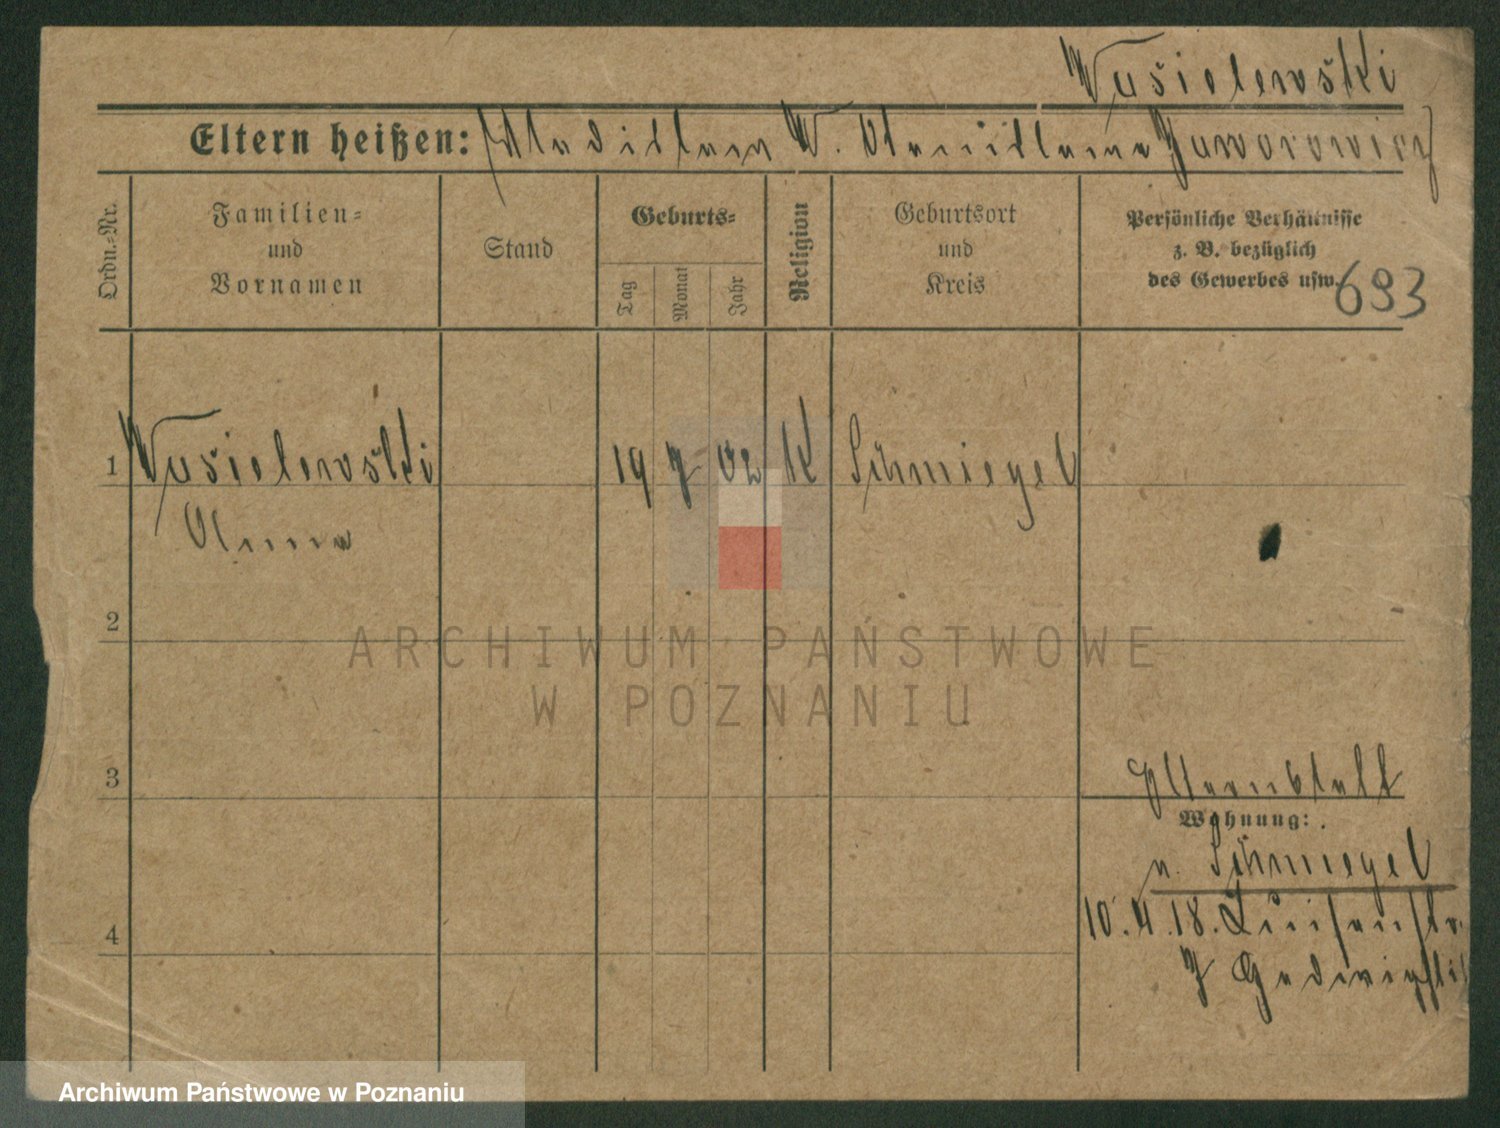 Wasielewski
Eltern heißen: Wladislaus W. Stanislawa Jaworowicz
Ordn.-Nr.
Familien-
und
Vornamen
Stand
Geburts-
Tag
Monat
Jahr
Religion
Geburtsort
und
Kreis
Persönliche Verhältnisse
z. B. bezüglich
des Gewerbes usw.
693
1 Wasielewski 19 7 02 K Schmiegel
Anna
2
ARCHIWUM PAŃSTWOWE
W POZNANIU
3
Wohnung:
n. Schmiegel
4
10.4.18. Luisenstr.
7
Archiwum Państwowe w Poznaniu